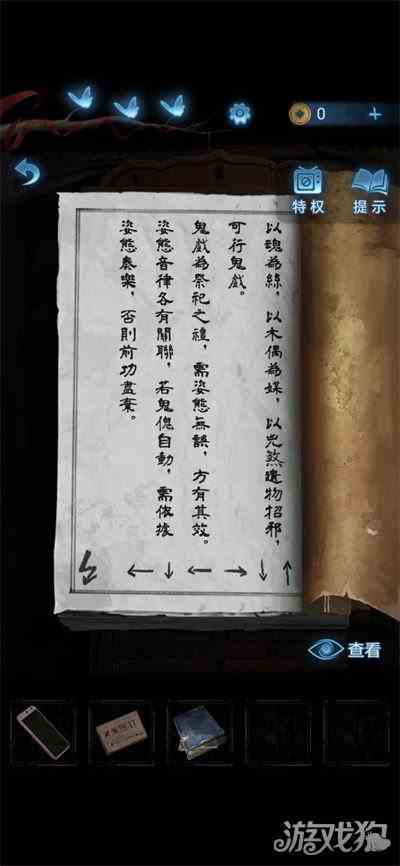 0 +
特权
提示
以魂為絲，以木偶為媒，以兇煞遺物招邪，
可行鬼戲。
鬼戲為祭祀之禮，需姿態無誤，方有其效。
姿態音律各有關聯，若鬼傀自動，需依據
姿態奏樂，否則前功盡棄。
← ↓ ← → ↓ ↑
查看
游戏狗